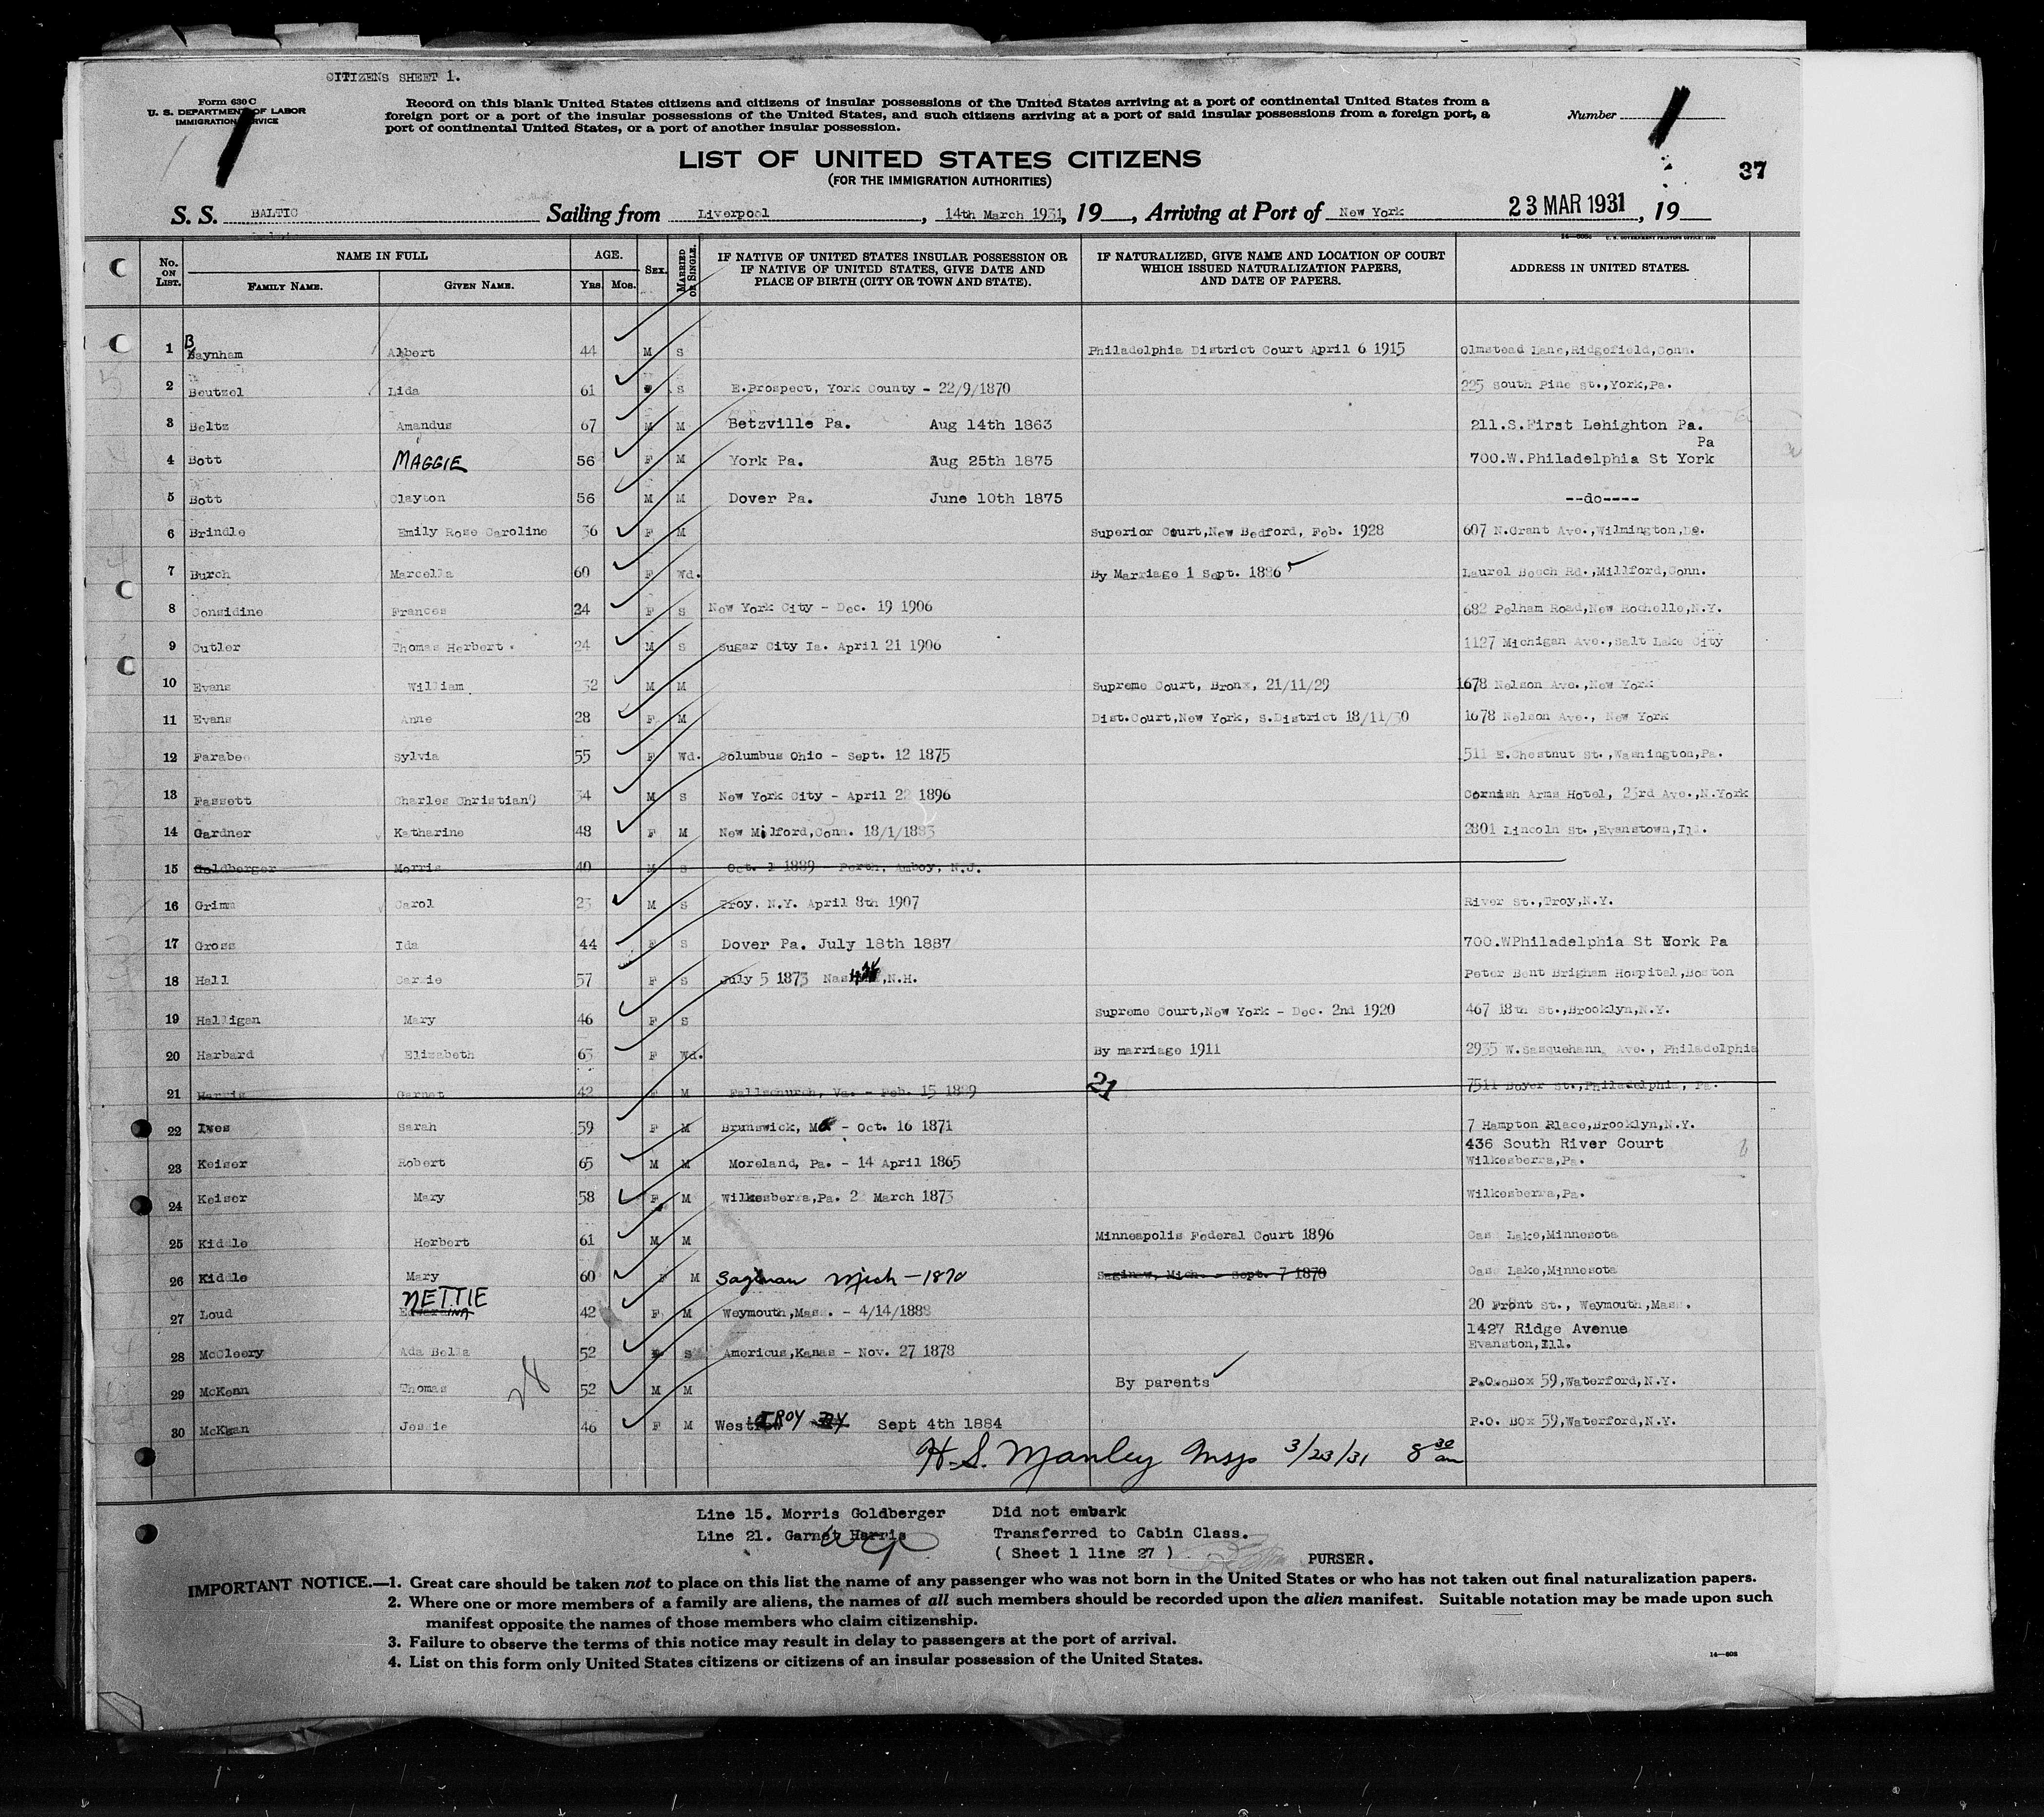 CITIZENS SHEET 1.
Form 630 C
U. S. DEPARTMENT OF LABOR
IMMIGRATION SERVICE
Record on this blank United States citizens and citizens of insular possessions of the United States arriving at a port of continental United States from a
foreign port or a port of the insular possessions of the United States, and such citizens arriving at a port of said insular possessions from a foreign port, a
port of continental United States, or a port of another insular possession.
Number
LIST OF UNITED STATES CITIZENS
(FOR THE IMMIGRATION AUTHORITIES)
37
S. S. BALTIC Sailing from Liverpool, 14th March 1931, 19 , Arriving at Port of New York 23 MAR 1931, 19
No. ON LIST. NAME IN FULL FAMILY NAME. GIVEN NAME. AGE. Yrs. Mos. SEX. MARRIED OR SINGLE. IF NATIVE OF UNITED STATES INSULAR POSSESSION OR IF NATIVE OF UNITED STATES, GIVE DATE AND PLACE OF BIRTH (CITY OR TOWN AND STATE). IF NATURALIZED, GIVE NAME AND LOCATION OF COURT WHICH ISSUED NATURALIZATION PAPERS, AND DATE OF PAPERS. ADDRESS IN UNITED STATES.
1 Baynham Albert 44 M S Philadelphia District Court April 6 1915 Olmstead Lane,Ridgefield,Conn.
2 Beutzel Lida 61 S E.Prospect, York County - 22/9/1870 225 South Pine St.,York,Pa.
3 Beltz Amandus 67 M M Betzville Pa. Aug 14th 1863 211.S.First Lehighton Pa.
4 Bott MAGGIE 56 F M York Pa. Aug 25th 1875 700.W.Philadelphia St York Pa
5 Bott Clayton 56 M M Dover Pa. June 10th 1875 --do----
6 Brindle Emily Rose Caroline 36 F M Superior Court,New Bedford, Feb. 1928 607 N.Grant Ave.,Wilmington,De.
7 Burch Marcella 60 F Wd. By Marriage 1 Sept. 1886 Laurel Beech Rd.,Millford,Conn.
8 Considine Frances 24 F S New York City - Dec. 19 1906 682 Pelham Road,New Rochelle,N.Y.
9 Cutler Thomas Herbert 24 M S Sugar City Ia. April 21 1906 1127 Michigan Ave.,Salt Lake City
10 Evans William 32 M M Supreme Court, Bronx, 21/11/29 1678 Nelson Ave.,New York
11 Evans Anne 28 F M Dist.Court,New York, S.District 18/11/30 1678 Nelson Ave., New York
12 Farabee Sylvia 55 F Wd. Columbus Ohio - Sept. 12 1875 511 E.Chestnut St.,Washington,Pa.
13 Fassett Charles Christian 34 M S New York City - April 22 1896 Cornish Arms Hotel, 23rd Ave.,N.York
14 Gardner Katharine 48 F M New Milford,Conn. 18/1/1883 2801 Lincoln St.,Evanstown,Ill.
15 Goldberger Morris 40 M S Oct. 1 1889 - Perth, Amboy, N.J.
16 Grimm Carol 23 M S Troy, N.Y. April 8th 1907 River St.,Troy,N.Y.
17 Gross Ida 44 F S Dover Pa. July 18th 1887 700.WPhiladelphia St York Pa
18 Hall Carrie 57 F S July 5 1873 ,N.H. Peter Bent Brigham Hospital,Boston
19 Halligan Mary 46 F S Supreme Court,New York - Dec. 2nd 1920 467 18th St.,Brooklyn,N.Y.
20 Harbard Elizabeth 63 F Wd. By marriage 1911 2935 W.Sasquehanna Ave., Philadelphia
21 Harris Garnet 42 F M Fallschurch, Va. - Feb. 15 1889 21 7511 Boyer St.,Philadelphia, Pa.
22 Ives Sarah 59 F M Brunswick, - Oct. 16 1871 7 Hampton Place,Brooklyn,N.Y.
23 Keiser Robert 65 M M Moreland, Pa. - 14 April 1865 436 South River Court Wilkesberra,Pa.
24 Keiser Mary 58 F M Wilkesberra,Pa. 2 March 1873 Wilkesberra,Pa.
25 Kiddle Herbert 61 M M Minneapolis Federal Court 1896 Cass Lake,Minnesota
26 Kiddle Mary 60 F M Saginaw Mich - 1870 Saginaw, Mich. - Sept. 7 1870 Cass Lake,Minnesota
27 Loud NETTIE 42 F M Weymouth,Mass. - 4/14/1888 20 Front St., Weymouth,Mass.
28 McCleery Ada Bella 52 S Americus,Kanas - Nov. 27 1878 1427 Ridge Avenue Evanston,Ill.
28
29 McKenn Thomas 52 M M By parents P.O.Box 59,Waterford,N.Y.
30 McKean Jessie 46 F M West TROY Sept 4th 1884 P.O. Box 59,Waterford,N.Y.
H. S. Manley Insp 3/23/31 8 30 am
Line 15. Morris Goldberger Did not embark
Line 21. Garnet Harris Transferred to Cabin Class.
( Sheet 1 line 27 )
PURSER.
IMPORTANT NOTICE.—1. Great care should be taken not to place on this list the name of any passenger who was not born in the United States or who has not taken out final naturalization papers.
2. Where one or more members of a family are aliens, the names of all such members should be recorded upon the alien manifest. Suitable notation may be made upon such
manifest opposite the names of those members who claim citizenship.
3. Failure to observe the terms of this notice may result in delay to passengers at the port of arrival.
4. List on this form only United States citizens or citizens of an insular possession of the United States.